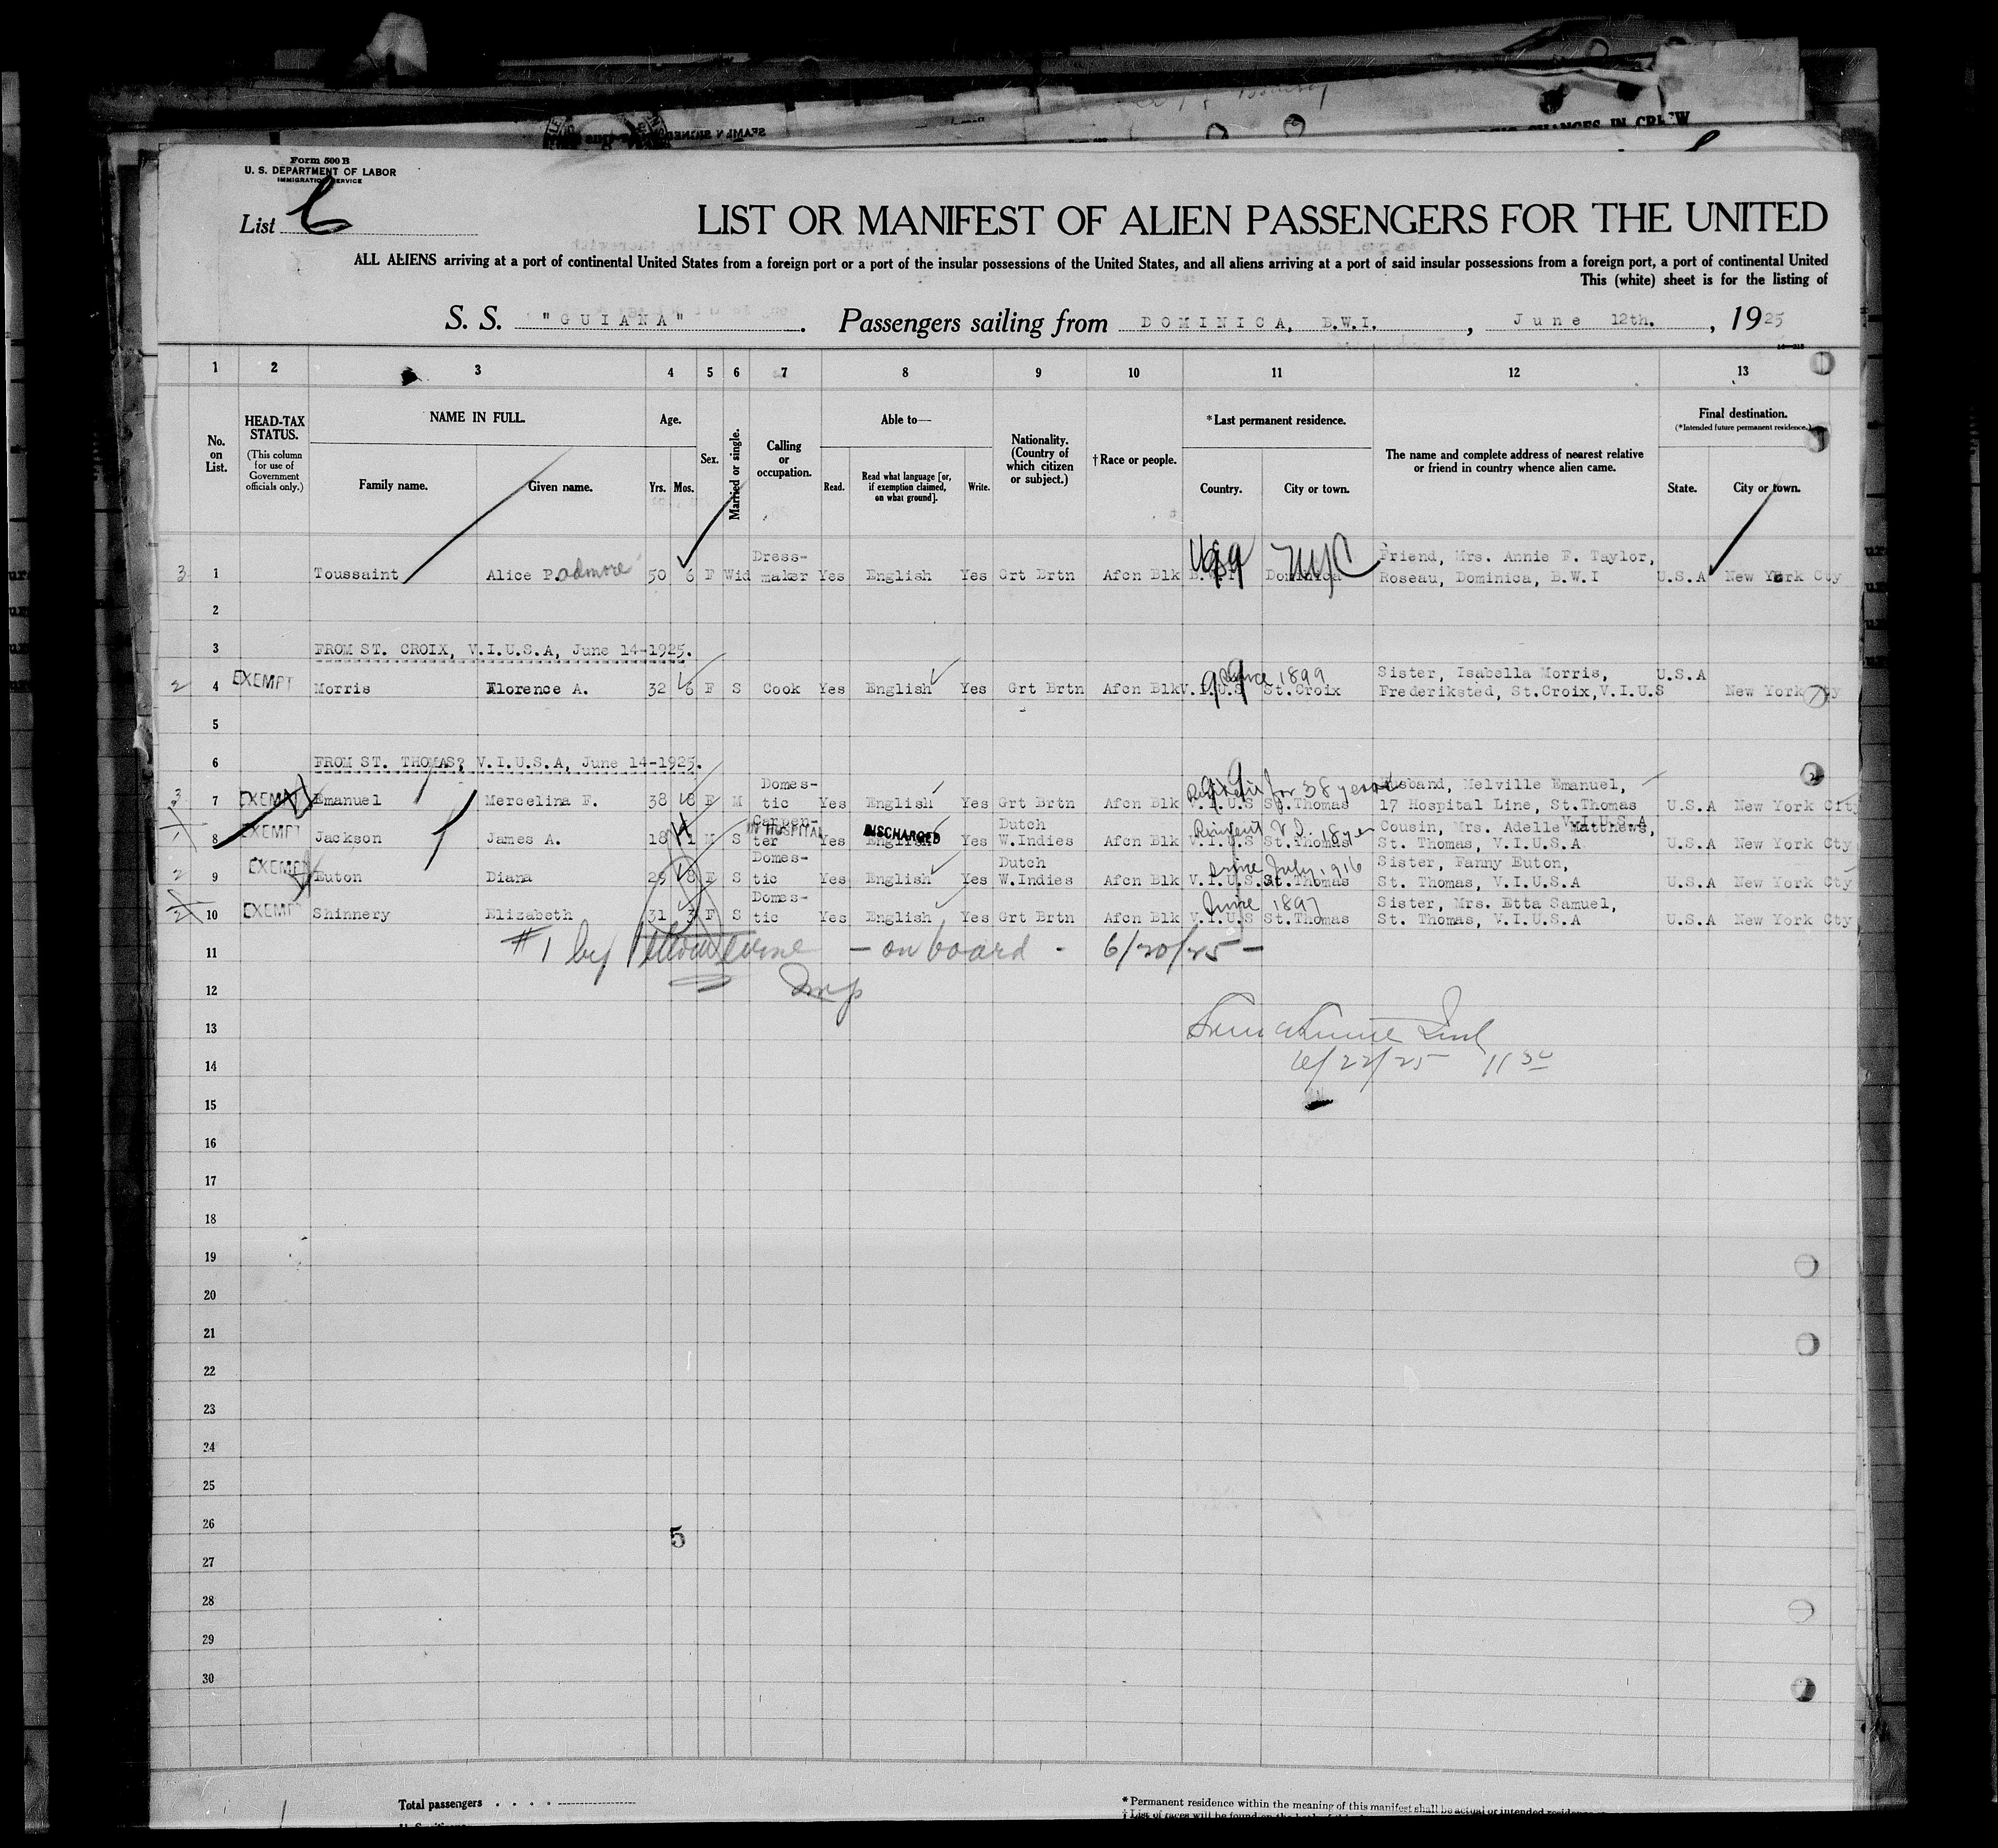 SEAMEN SIGNED
CHANGES IN CREW
Form 500 B
U. S. DEPARTMENT OF LABOR
IMMIGRATION SERVICE
List 6
LIST OR MANIFEST OF ALIEN PASSENGERS FOR THE UNITED
ALL ALIENS arriving at a port of continental United States from a foreign port or a port of the insular possessions of the United States, and all aliens arriving at a port of said insular possessions from a foreign port, a port of continental United
This (white) sheet is for the listing of
S. S. "GUIANA". Passengers sailing from DOMINICA, B.W.I., June 12th., 1925
1 2 3 4 5 6 7 8 9 10 11 12 13
No. on List.
HEAD-TAX STATUS. (This column for use of Government officials only.)
NAME IN FULL. Family name. Given name.
Age. Yrs. Mos.
Sex.
Married or single.
Calling or occupation.
Able to— Read. Read what language [or, if exemption claimed, on what ground]. Write.
Nationality. (Country of which citizen or subject.)
†Race or people.
*Last permanent residence. Country. City or town.
The name and complete address of nearest relative or friend in country whence alien came.
Final destination. (*Intended future permanent residence.) State. City or town.
3 1 Toussaint Alice Padmore 50 6 F Wid Dress-maker Yes English Yes Grt Brtn Afcn Blk B.W.I USA Dominica NYC Friend, Mrs. Annie F. Taylor, Roseau, Dominica, B.W.I U.S.A New York Cty
2
3 FROM ST. CROIX, V.I.U.S.A, June 14-1925.
2 4 EXEMPT Morris Florence A. 32 6 F S Cook Yes English Yes Grt Brtn Afcn Blk V.I.U.S St.Croix since 1899 Sister, Isabella Morris, Frederiksted, St.Croix,V.I.U.S U.S.A New York Cty
5
6 FROM ST. THOMAS, V.I.U.S.A, June 14-1925.
3 7 EXEMPT Emanuel Mercelina F. 38 8 F M Domes-tic Yes English Yes Grt Brtn Afcn Blk V.I.U.S St.Thomas for 38 years Husband, Melville Emanuel, 17 Hospital Line, St.Thomas V.I.U.S.A U.S.A New York City
8 EXEMPT Jackson James A. 18 1 M S Carpen-ter IN HOSPITAL Yes English DISCHARGED Yes Dutch W.Indies Afcn Blk V.I.U.S St.Thomas 18 yer Cousin, Mrs. Adelle Matthews, St. Thomas, V.I.U.S.A U.S.A New York Cty
2 9 EXEMPT Euton Diana 29 8 F S Domes-tic Yes English Yes Dutch W.Indies Afcn Blk V.I.U.S St.Thomas since July 1916 Sister, Fanny Euton, St. Thomas, V.I.U.S.A U.S.A New York Cty
2 10 EXEMPT Shinnery Elizabeth 31 3 F S Domes-tic Yes English Yes Grt Brtn Afcn Blk V.I.U.S St.Thomas 1897 Sister, Mrs. Etta Samuel, St. Thomas, V.I.U.S.A U.S.A New York Cty
11 #1 by - on board - 6/20/25 -
12
13
14 6/22/25 11 30
15
16
17
18
19
20
21
22
23
24
25
26 5
27
28
29
30
Total passengers . . . .
* Permanent residence within the meaning of this manifest shall be actual or intended residence
† List of races will be found on the back of this